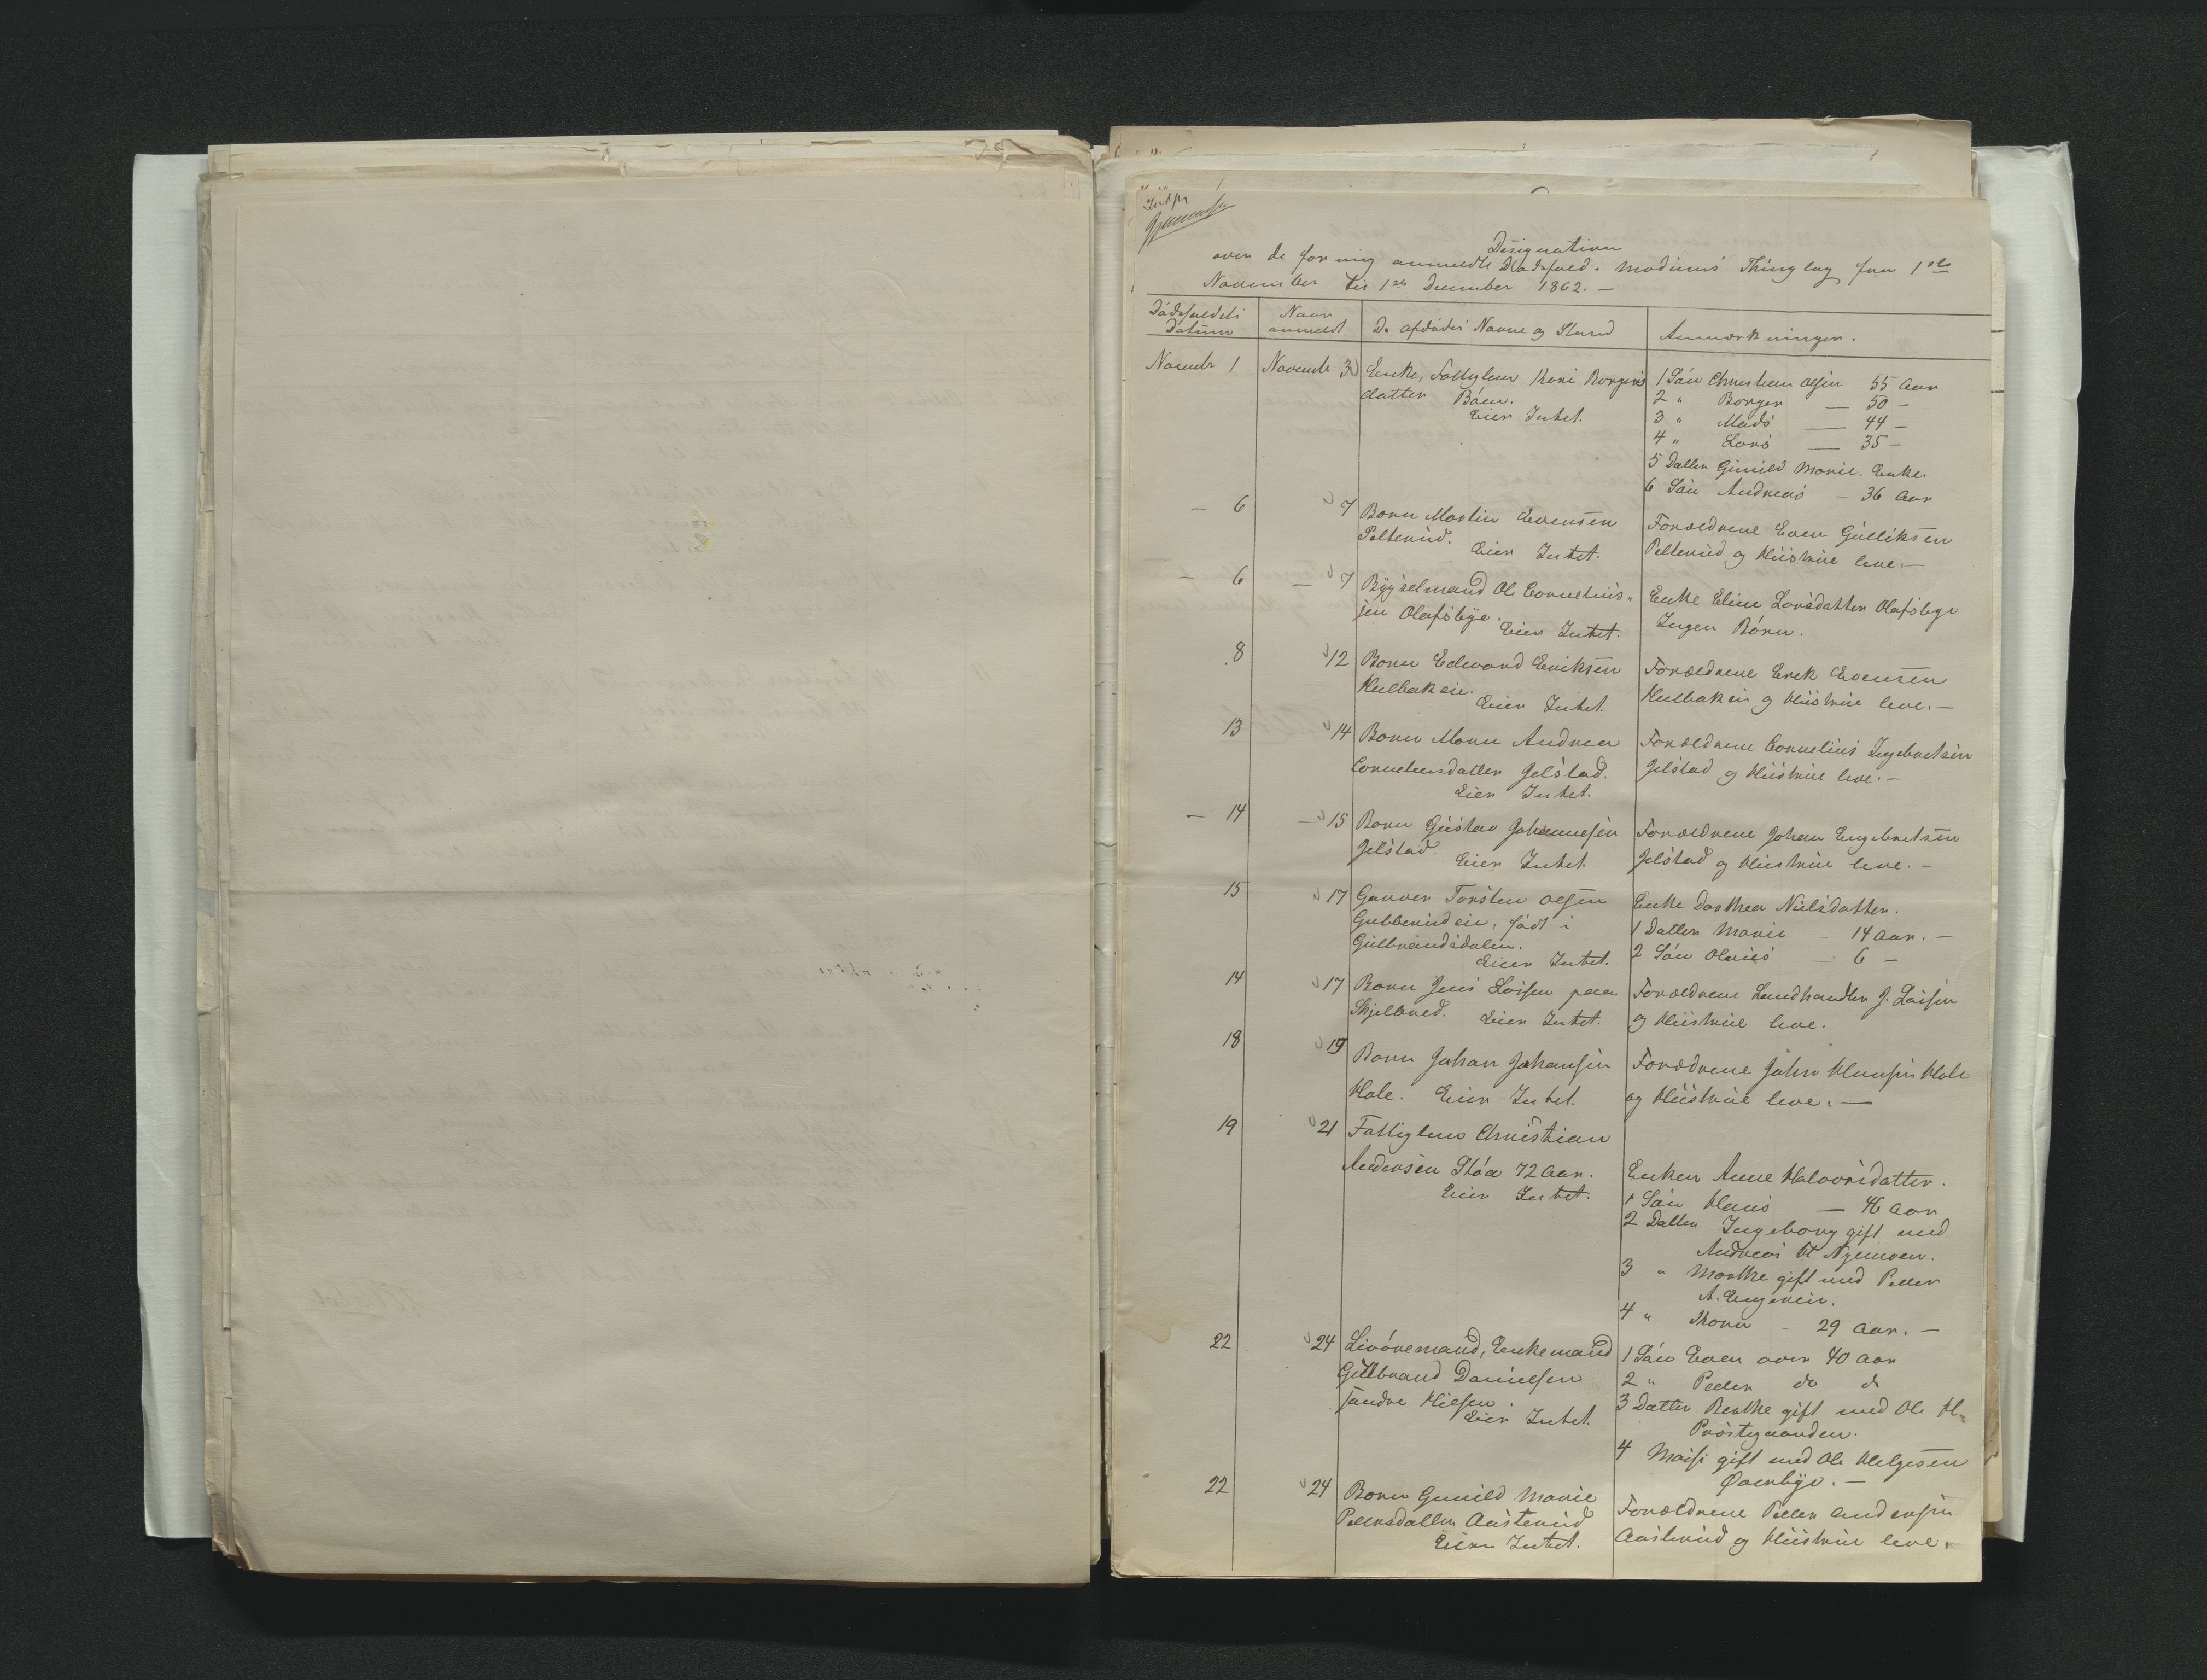 Designation
over de for mig anmeldte Dødsfald i Modums Thinglag fra 1ste
November til 1ste December 1862. —
Dødsfaldets Datum
Naar anmeldt
De afdødes Navne og Stand
Anmærkninger.
Novembr 1 Novembr 3 Enke, Fattiglem Kari Borgers
datter Böen.
Eier Intet.
1 Søn Christian Olsen 55 Aar
2 " Borger — 50 —
3 " Mads — 44 —
4 " Lars — 35 —
5 Datter Gunild Marie. Enke.
6 Søn Andreas — 36 Aar
— 6 7 Barn Martin Evensen
Pelterud. Eier Intet.
Forældrene Even Gulliksen
Pelterud og Hustrue leve. —
— 6 — 7 Bygselmand Ole Cornelius-
sen Olafsbye. Eier Intet.
Enke Eline Larsdatter Olafsbye
Ingen Børn.
8 12 Barn Edvard Eriksen
Hulbakeie.
Eier Intet.
Forældrene Erik Evensen
Hulbakeie og Hustrue leve. —
13 14 Barn Maren Andrea
Corneliusdatter Jelstad.
Eier Intet.
Forældrene Cornelius Ingebretsen
Jelstad og Hustrue leve. —
— 14 — 15 Barn Gustav Johannesen
Jelstad. Eier Intet.
Forældrene Johan Engebretsen
Jelstad og Hustrue leve. —
15 17 Garver Torsten Olsen
Gubberudeie, født i
Gulbrandsdalen.
Eier Intet.
Enke Dorthea Nielsdatter.
1 Datter Marie — 14 Aar. —
2 Søn Olaus — 6 —
14 17 Barn Jens Larsen paa
Skjelbred. Eier Intet.
Forældrene Landhandler J. Larsen
og Hustrue leve.
18 19 Barn Johan Johansen
Hole. Eier Intet.
Forædrene John Hansen Hole
og Hustrue leve. —
19 21 Fattiglem Christian
Andersen Støa 72 Aar.
Eier Intet.
Enken Anne Halvorsdatter.
1 Søn Hans — 46 Aar
2 Datter Ingeborg gift med
Andreas H Nyemoen.
3 " Marthe gift med Peder
A. Engeneie.
4 " Maren — 29 Aar. —
22 24 Livøremand, Enkemand
Gulbrand Danielsen
søndre Hiesen.
Eier Intet.
1 Søn Even over 40 Aar
2 " Peder do do
3 Datter Berthe gift med Ole H.
Prøstegaarden.
4 Maisi gift med Ole Helgesen
Øverbye. —
22 24 Barn Gunild Marie
Pedersdatter Aasterud
Eier Intet.
Forældrene Peder Andersen
Aasterud og Hustrue leve.